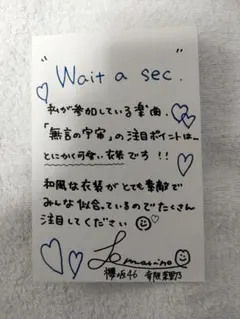 "Wait a sec."
私が参加している楽曲、
「無言の宇宙」の注目ポイントは、
とにかく可愛い衣装です!!
和風な衣装がとても素敵で
みんな似合っているのでたくさん
注目してください
櫻坂46